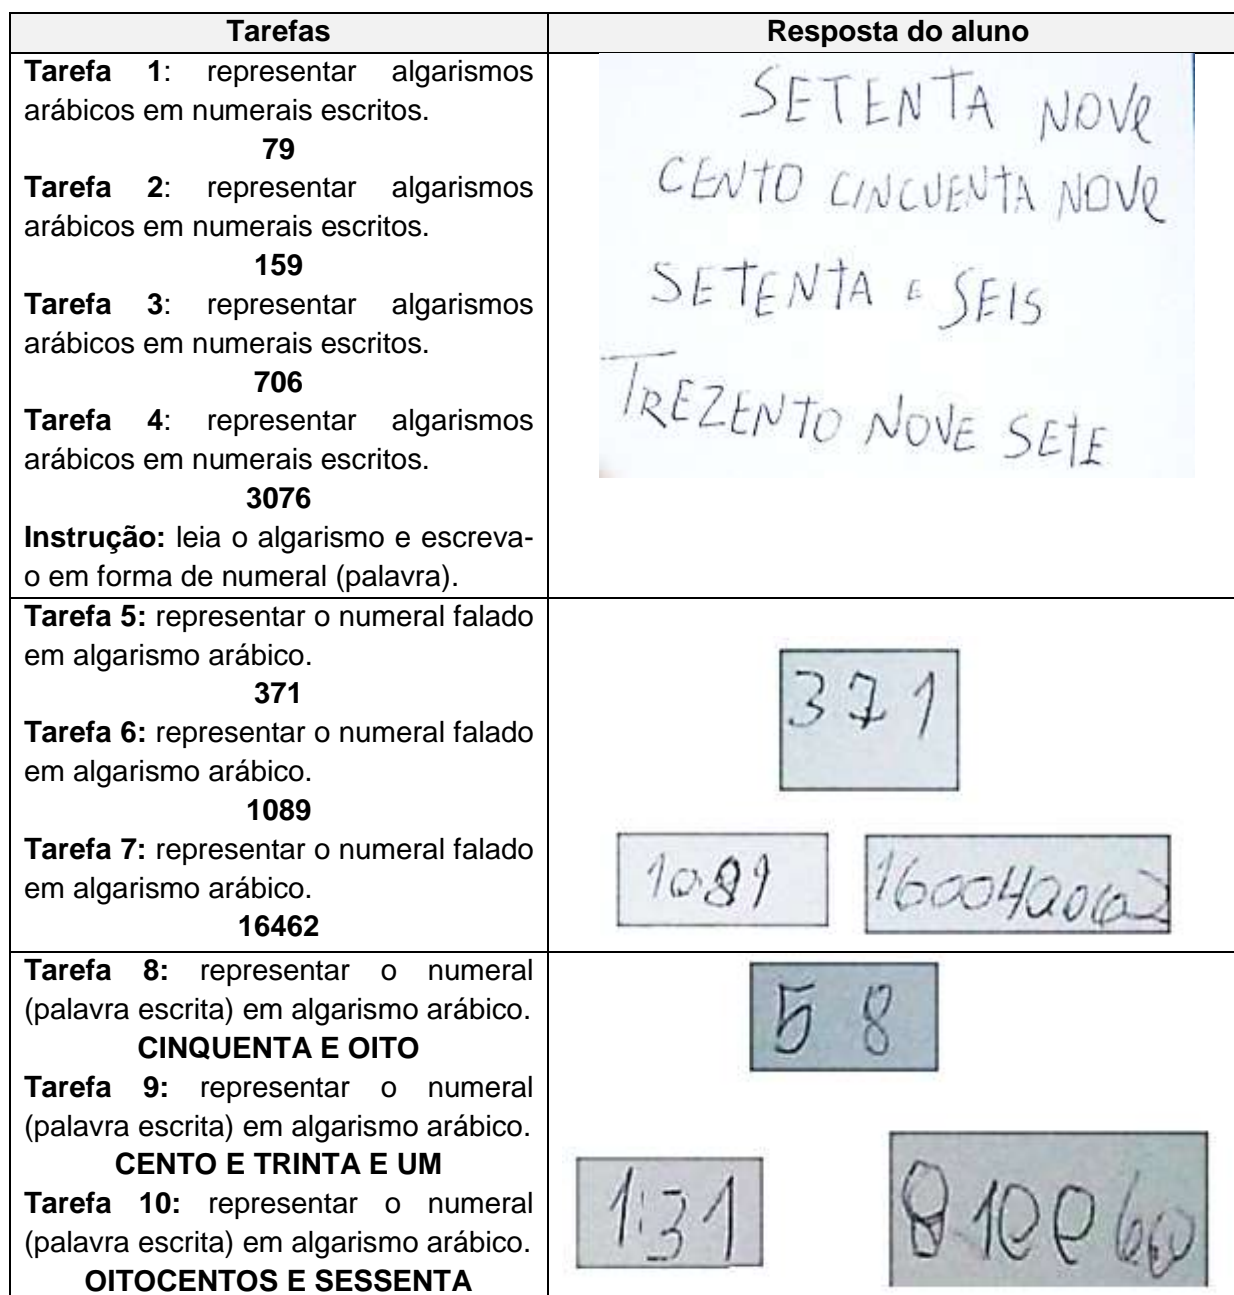 Tarefas
Resposta do aluno
Tarefa 1: representar algarismos
arábicos em numerais escritos.
79
Tarefa 2: representar algarismos
arábicos em numerais escritos.
159
Tarefa 3: representar algarismos
arábicos em numerais escritos.
706
Tarefa 4: representar algarismos
arábicos em numerais escritos.
3076
Instrução: leia o algarismo e escreva-
o em forma de numeral (palavra).
SETENTA NOVe
CENTO CINCUENTA NOVe
SETENTA E SEIS
TREZENTO NOVE SETE
Tarefa 5: representar o numeral falado
em algarismo arábico.
371
Tarefa 6: representar o numeral falado
em algarismo arábico.
1089
Tarefa 7: representar o numeral falado
em algarismo arábico.
16462
371
1089
160040062
Tarefa 8: representar o numeral
(palavra escrita) em algarismo arábico.
CINQUENTA E OITO
Tarefa 9: representar o numeral
(palavra escrita) em algarismo arábico.
CENTO E TRINTA E UM
Tarefa 10: representar o numeral
(palavra escrita) em algarismo arábico.
OITOCENTOS E SESSENTA
58
1:31